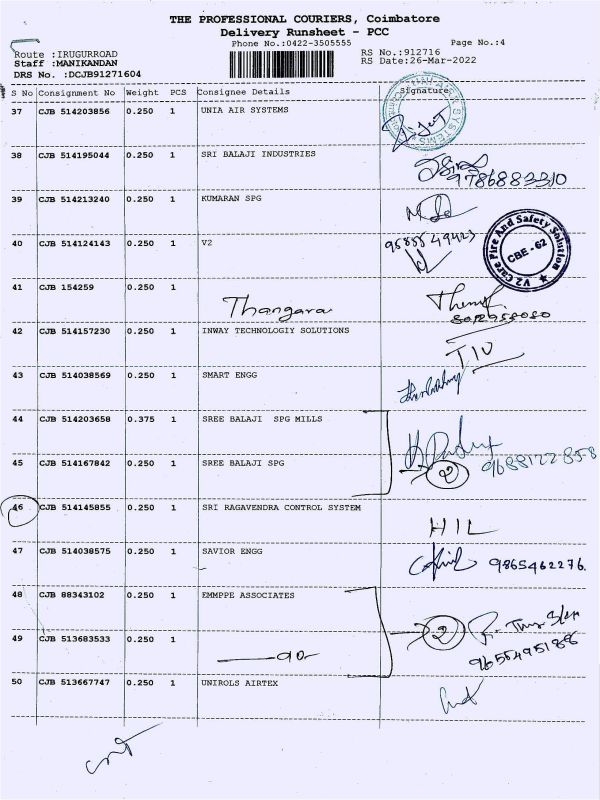 THE PROFESSIONAL COURIERS, Coimbatore
Delivery Runsheet - PCC
Phone No.:0422-3505555 Page No.:4
Route :IRUGURROAD RS No.:912716
Staff :MANIKANDAN RS Date:26-Mar-2022
DRS No. :DCJB91271604
S No Consignment No Weight PCS Consignee Details Signature
37 CJB 514203856 0.250 1 UNIA AIR SYSTEMS
38 CJB 514195044 0.250 1 SRI BALAJI INDUSTRIES
9786883310
39 CJB 514213240 0.250 1 KUMARAN SPG
40 CJB 514124143 0.250 1 V2
V2 Care Fire And Safety Solution
CBE - 62
41 CJB 154259 0.250 1
Thangara
42 CJB 514157230 0.250 1 INWAY TECHNOLOGIY SOLUTIONS
43 CJB 514038569 0.250 1 SMART ENGG
44 CJB 514203658 0.375 1 SREE BALAJI SPG MILLS
45 CJB 514167842 0.250 1 SREE BALAJI SPG
2
46 CJB 514145855 0.250 1 SRI RAGAVENDRA CONTROL SYSTEM
HIL
47 CJB 514038575 0.250 1 SAVIOR ENGG
9865462276
48 CJB 88343102 0.250 1 EMMPPE ASSOCIATES
2
49 CJB 513683533 0.250 1
50 CJB 513667747 0.250 1 UNIROLS AIRTEX